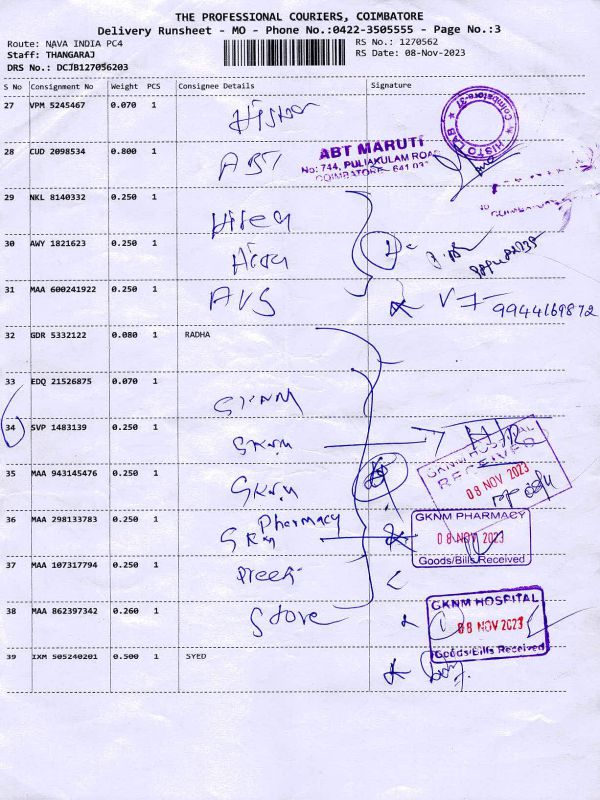 THE PROFESSIONAL COURIERS, COIMBATORE
Delivery Runsheet - MO - Phone No.:0422-3505555 - Page No.:3
Route: NAVA INDIA PC4
RS No.: 1270562
Staff: THANGARAJ
RS Date: 08-Nov-2023
DRS No.: DCJB127056203
S No Consignment No Weight PCS Consignee Details Signature
27 VPM 5245467 0.070 1
HISTO LAB
Coimbatore-37
28 CUD 2098534 0.800 1 ABT
ABT MARUTI
No: 744, PULIAKULAM ROAD
COIMBATORE - 641 037
29 NKL 8140332 0.250 1
30 AWY 1821623 0.250 1
31 MAA 600241922 0.250 1 AVS
9944169872
32 GDR 5332122 0.080 1 RADHA
33 EDQ 21526875 0.070 1 GKNM
34 SVP 1483139 0.250 1 GKNM
GKNM HOSPITAL
RECEIVED
08 NOV 2023
35 MAA 943145476 0.250 1 GKNM
36 MAA 298133783 0.250 1 GKNM Pharmacy
GKNM PHARMACY
08 NOV 2023
Goods/Bills Received
37 MAA 107317794 0.250 1
38 MAA 862397342 0.260 1 Store
GKNM HOSPITAL
08 NOV 2023
Goods/Bills Received
39 IXM 505240201 0.500 1 SYED